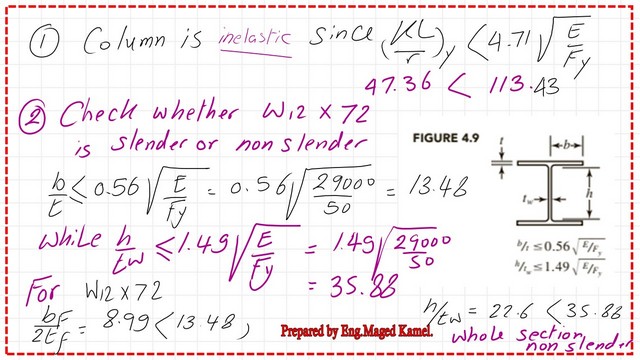 ① Column is inelastic since (KL/r)y < 4.71 √(E/Fy)
47.36 < 113.43
② Check whether W12 x 72
is slender or non slender
b/t ≤ 0.56 √(E/Fy) = 0.56 √(29000/50) = 13.48
while h/tw ≤ 1.49 √(E/Fy) = 1.49 √(29000/50)
= 35.88
For W12 x 72
bF/2tF = 8.99 < 13.48,
FIGURE 4.9
t
b
tw
h
b/t ≤ 0.56 √E/Fy
h/tw ≤ 1.49 √E/Fy
h/tw = 22.6 < 35.88
whole section
non slender
Prepared by Eng.Maged Kamel.